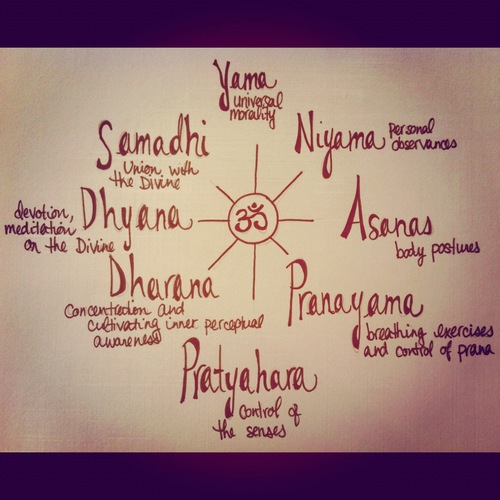 Yama
universal
morality
Niyama personal
observances
Asanas
body postures
Pranayama
breathing exercises
and control of prana
Pratyahara
control of
the senses
Dharana
Concentration and
cultivating inner perceptual
awareness
devotion, Dhyana
meditation
on the Divine
Samadhi
Union with
the Divine
ॐ